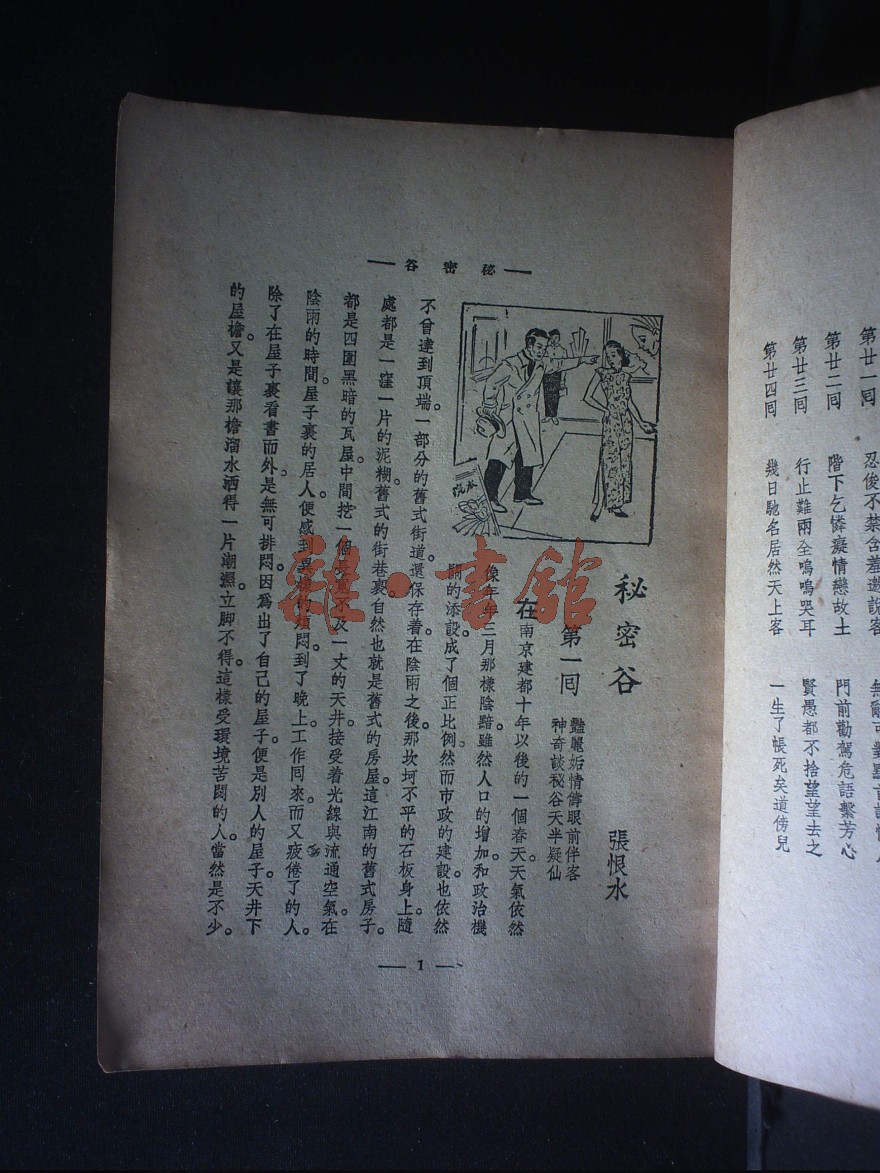 第廿一囘 忍俊不禁含羞遊說客
第廿二囘 階下乞憐癡情戀故土 門前勸駕危語繫芳心
第廿三囘 行止難兩全嗚嗚哭耳 賢愚都不捨望望去之
第廿四囘 幾日馳名居然天上客 一生了帳死矣道傍兒
秘密谷
秘密谷
張恨水
第一囘
豔麗妬情儔眼前伴客
神奇談秘谷天半疑仙
在南京建都十年以後的一個春天。天氣依然
像年年三月那樣陰黯。雖然人口的增加和政治機
關的添設成了個正比例。然而市政的建設也依然
不曾達到頂端。一部分的舊式街道還保存着在陰雨之後。那坎坷不平的石板身上。隨
處都是一窪一片的泥糊。舊式的街巷裏。自然也就是舊式的房屋。這江南的舊式房子。
都是四圍黑暗的瓦屋。中間挖一個不及一丈的天井。接受着光線與流通空氣。在
陰雨的時間。屋子裏的居人。便感到的悶。到了晚上。工作囘來而又疲倦了的人。
除了在屋子裏看書而外。是無可排悶。因爲出了自己的屋子。便是別人的屋子。天井下
的屋檐。又是讓那檐溜水洒得一片潮濕。立脚不得。這樣受環境苦悶的人。當然是不少。
1
雜·書館